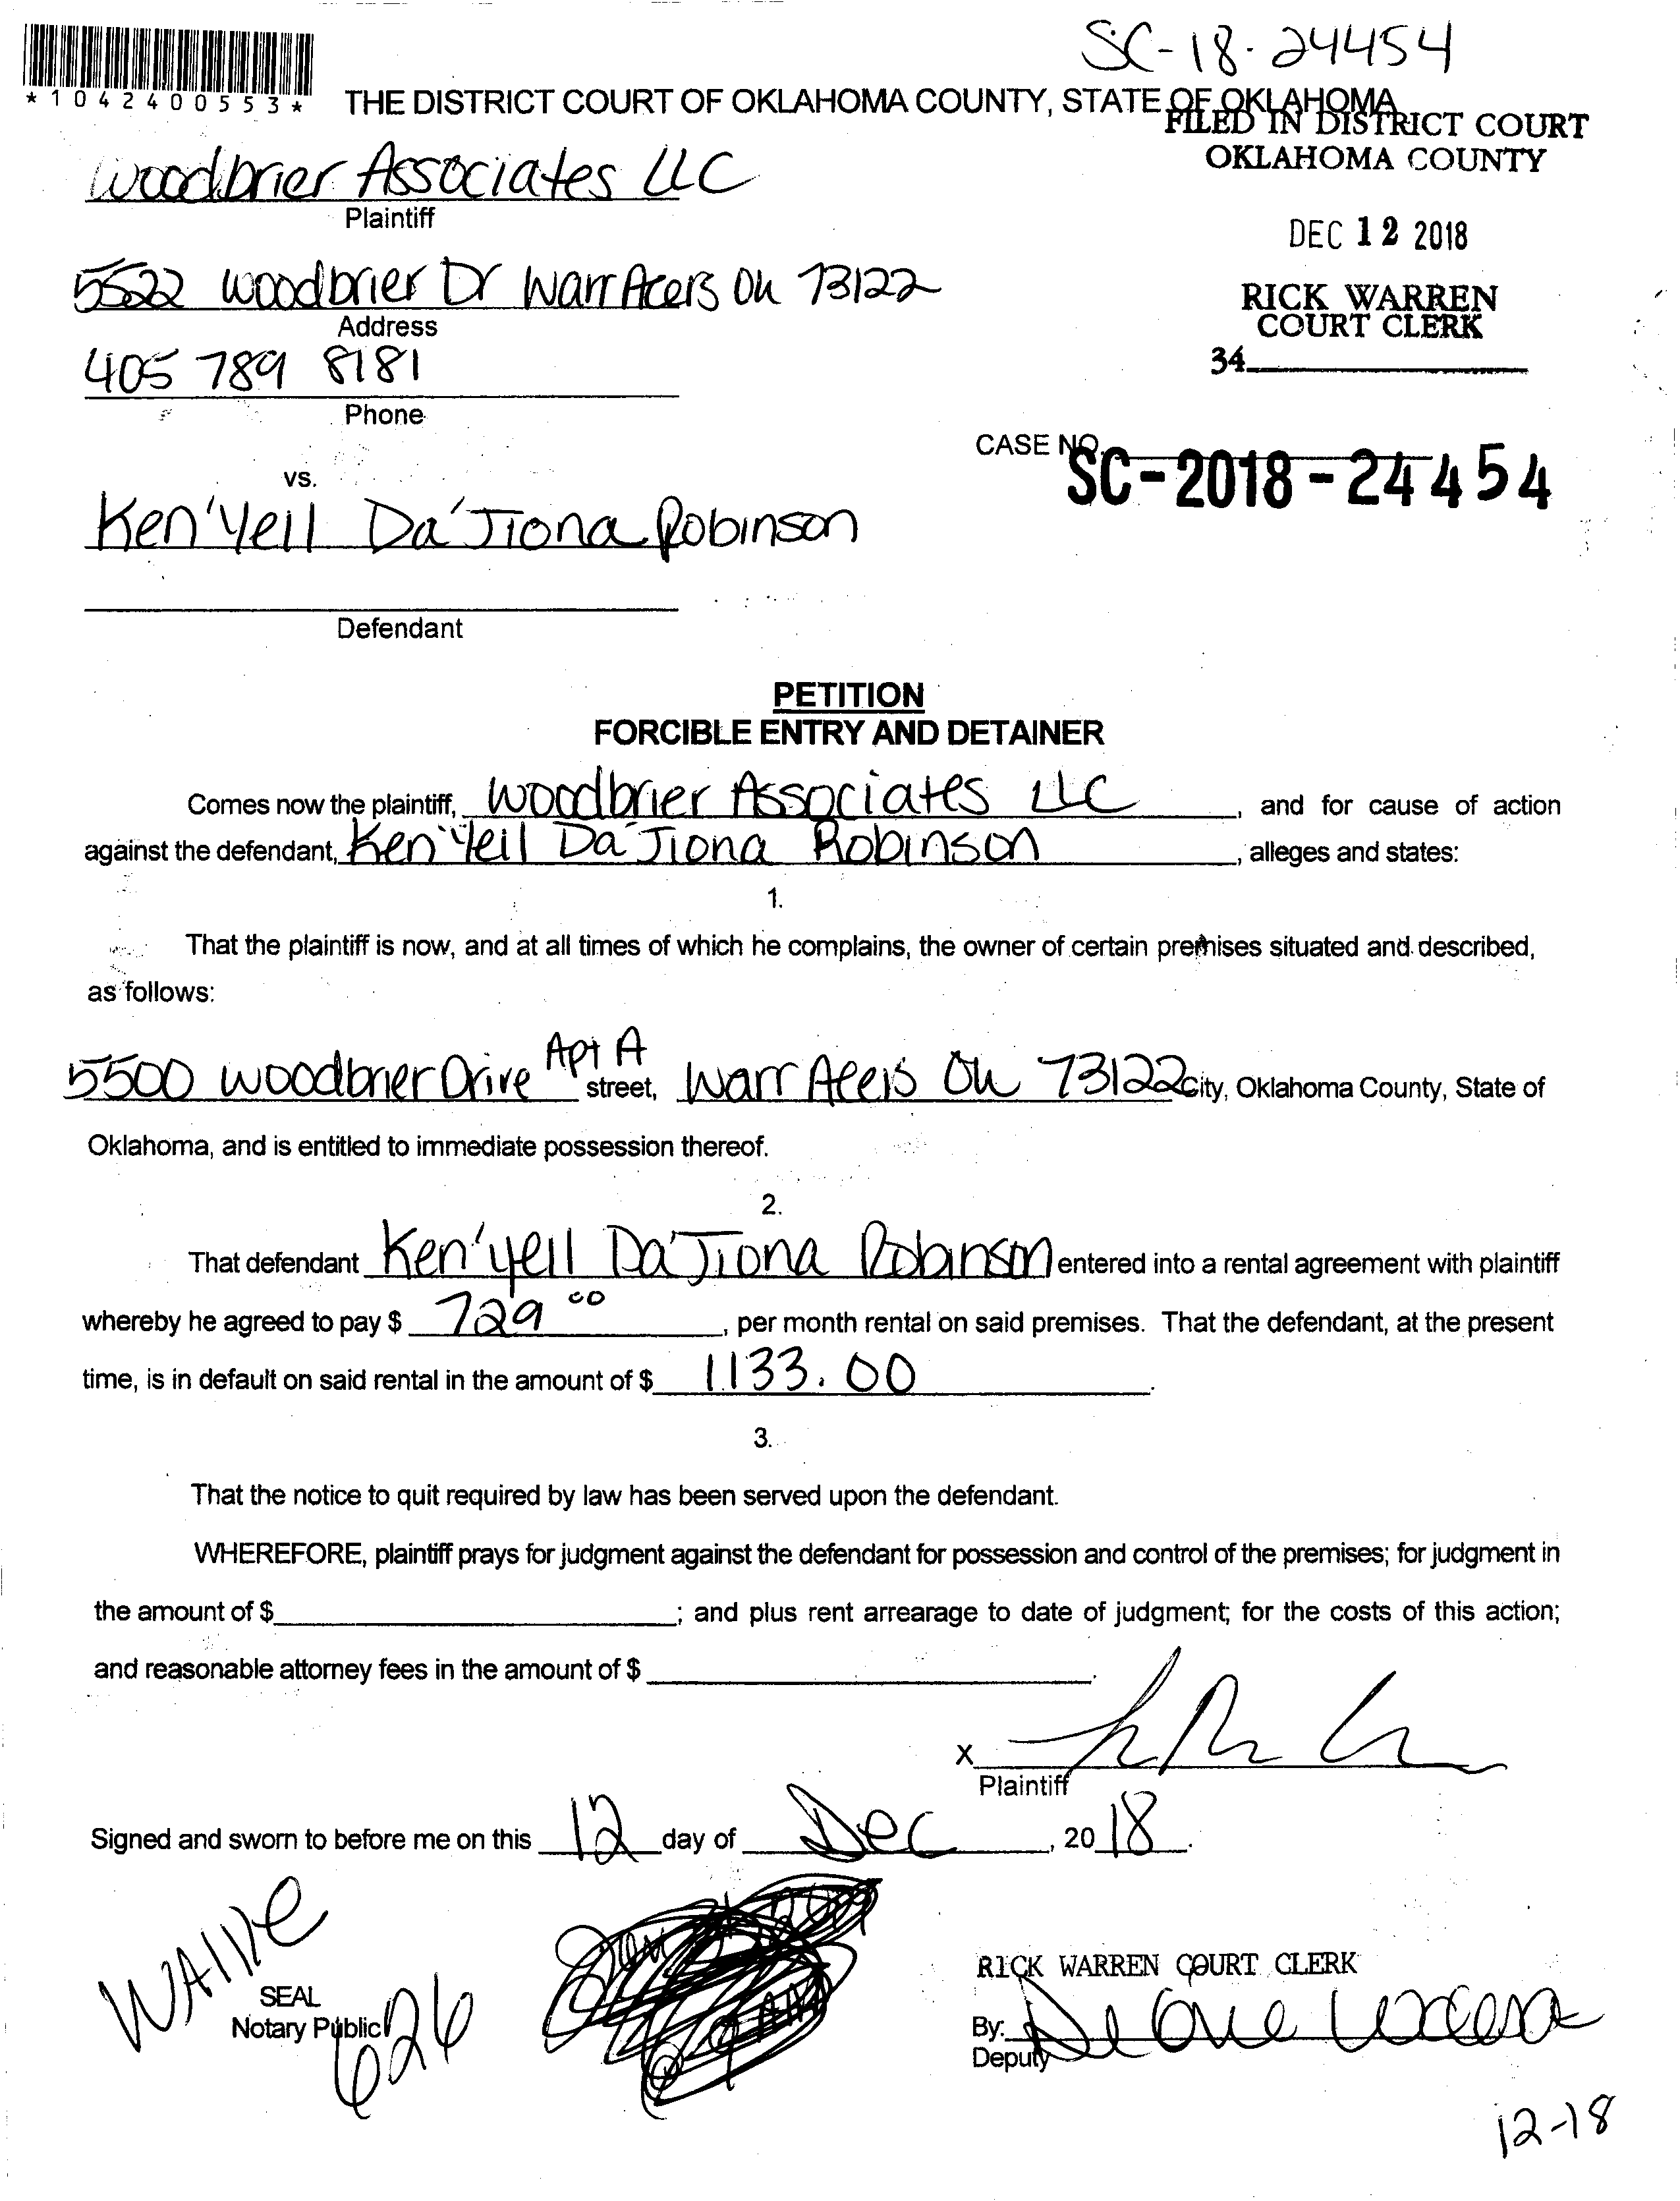 SC-18-24454
*1042400553*
THE DISTRICT COURT OF OKLAHOMA COUNTY, STATE OF OKLAHOMA
FILED IN DISTRICT COURT
OKLAHOMA COUNTY
Woodbrier Associates LLC
Plaintiff
DEC 12 2018
5522 Woodbrier Dr Warr Acers Ok 73122
Address
RICK WARREN
COURT CLERK
34
405 789 8181
Phone
CASE NO.
SC-2018-24454
vs.
Ken'Yell Da'Jiona Robinson
Defendant
PETITION
FORCIBLE ENTRY AND DETAINER
Comes now the plaintiff, Woodbrier Associates LLC, and for cause of action
against the defendant, Ken'Yell Da'Jiona Robinson, alleges and states:
1.
That the plaintiff is now, and at all times of which he complains, the owner of certain premises situated and described,
as follows:
5500 Woodbrier Drive Apt A street, Warr Acers Ok 73122 City, Oklahoma County, State of
Oklahoma, and is entitled to immediate possession thereof.
2.
That defendant Ken'Yell Da'Jiona Robinson entered into a rental agreement with plaintiff
whereby he agreed to pay $ 729.00, per month rental on said premises. That the defendant, at the present
time, is in default on said rental in the amount of $ 1133.00.
3.
That the notice to quit required by law has been served upon the defendant.
WHEREFORE, plaintiff prays for judgment against the defendant for possession and control of the premises; for judgment in
the amount of $; and plus rent arrearage to date of judgment; for the costs of this action;
and reasonable attorney fees in the amount of $.
X
Plaintiff
Signed and sworn to before me on this 12 day of Dec, 2018.
WAIVE
SEAL
Notary Public
626
RICK WARREN COURT CLERK
By:
Deputy
12-18